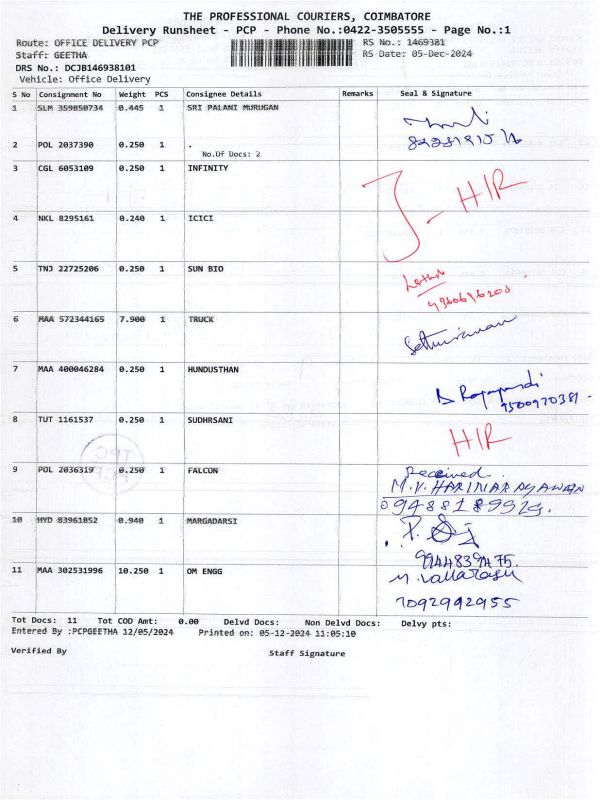 THE PROFESSIONAL COURIERS, COIMBATORE
Delivery Runsheet - PCP - Phone No.:0422-3505555 - Page No.:1
Route: OFFICE DELIVERY PCP RS No.: 1469381
Staff: GEETHA RS Date: 05-Dec-2024
DRS No.: DCJB146938101
Vehicle: Office Delivery
S No Consignment No Weight PCS Consignee Details Remarks Seal & Signature
1 SLM 359850734 0.445 1 SRI PALANI MURUGAN
2 POL 2037390 0.250 1 .
No.Of Docs: 2
3 CGL 6053109 0.250 1 INFINITY
J - HIR
4 NKL 8295161 0.240 1 ICICI
5 TNJ 22725206 0.250 1 SUN BIO
6 MAA 572344165 7.900 1 TRUCK
Sethuraman
7 MAA 400046284 0.250 1 HUNDUSTHAN
9500970381.
8 TUT 1161537 0.250 1 SUDHRSANI
HIR
9 POL 2036319 0.250 1 FALCON
Received.
M.V. HARINARAYANAN
10 HYD 83961852 0.940 1 MARGADARSI
11 MAA 302531996 10.250 1 OM ENGG
7092992955
Tot Docs: 11 Tot COD Amt: 0.00 Delvd Docs: Non Delvd Docs: Delvy pts:
Entered By :PCPGEETHA 12/05/2024 Printed on: 05-12-2024 11:05:10
Verified By Staff Signature